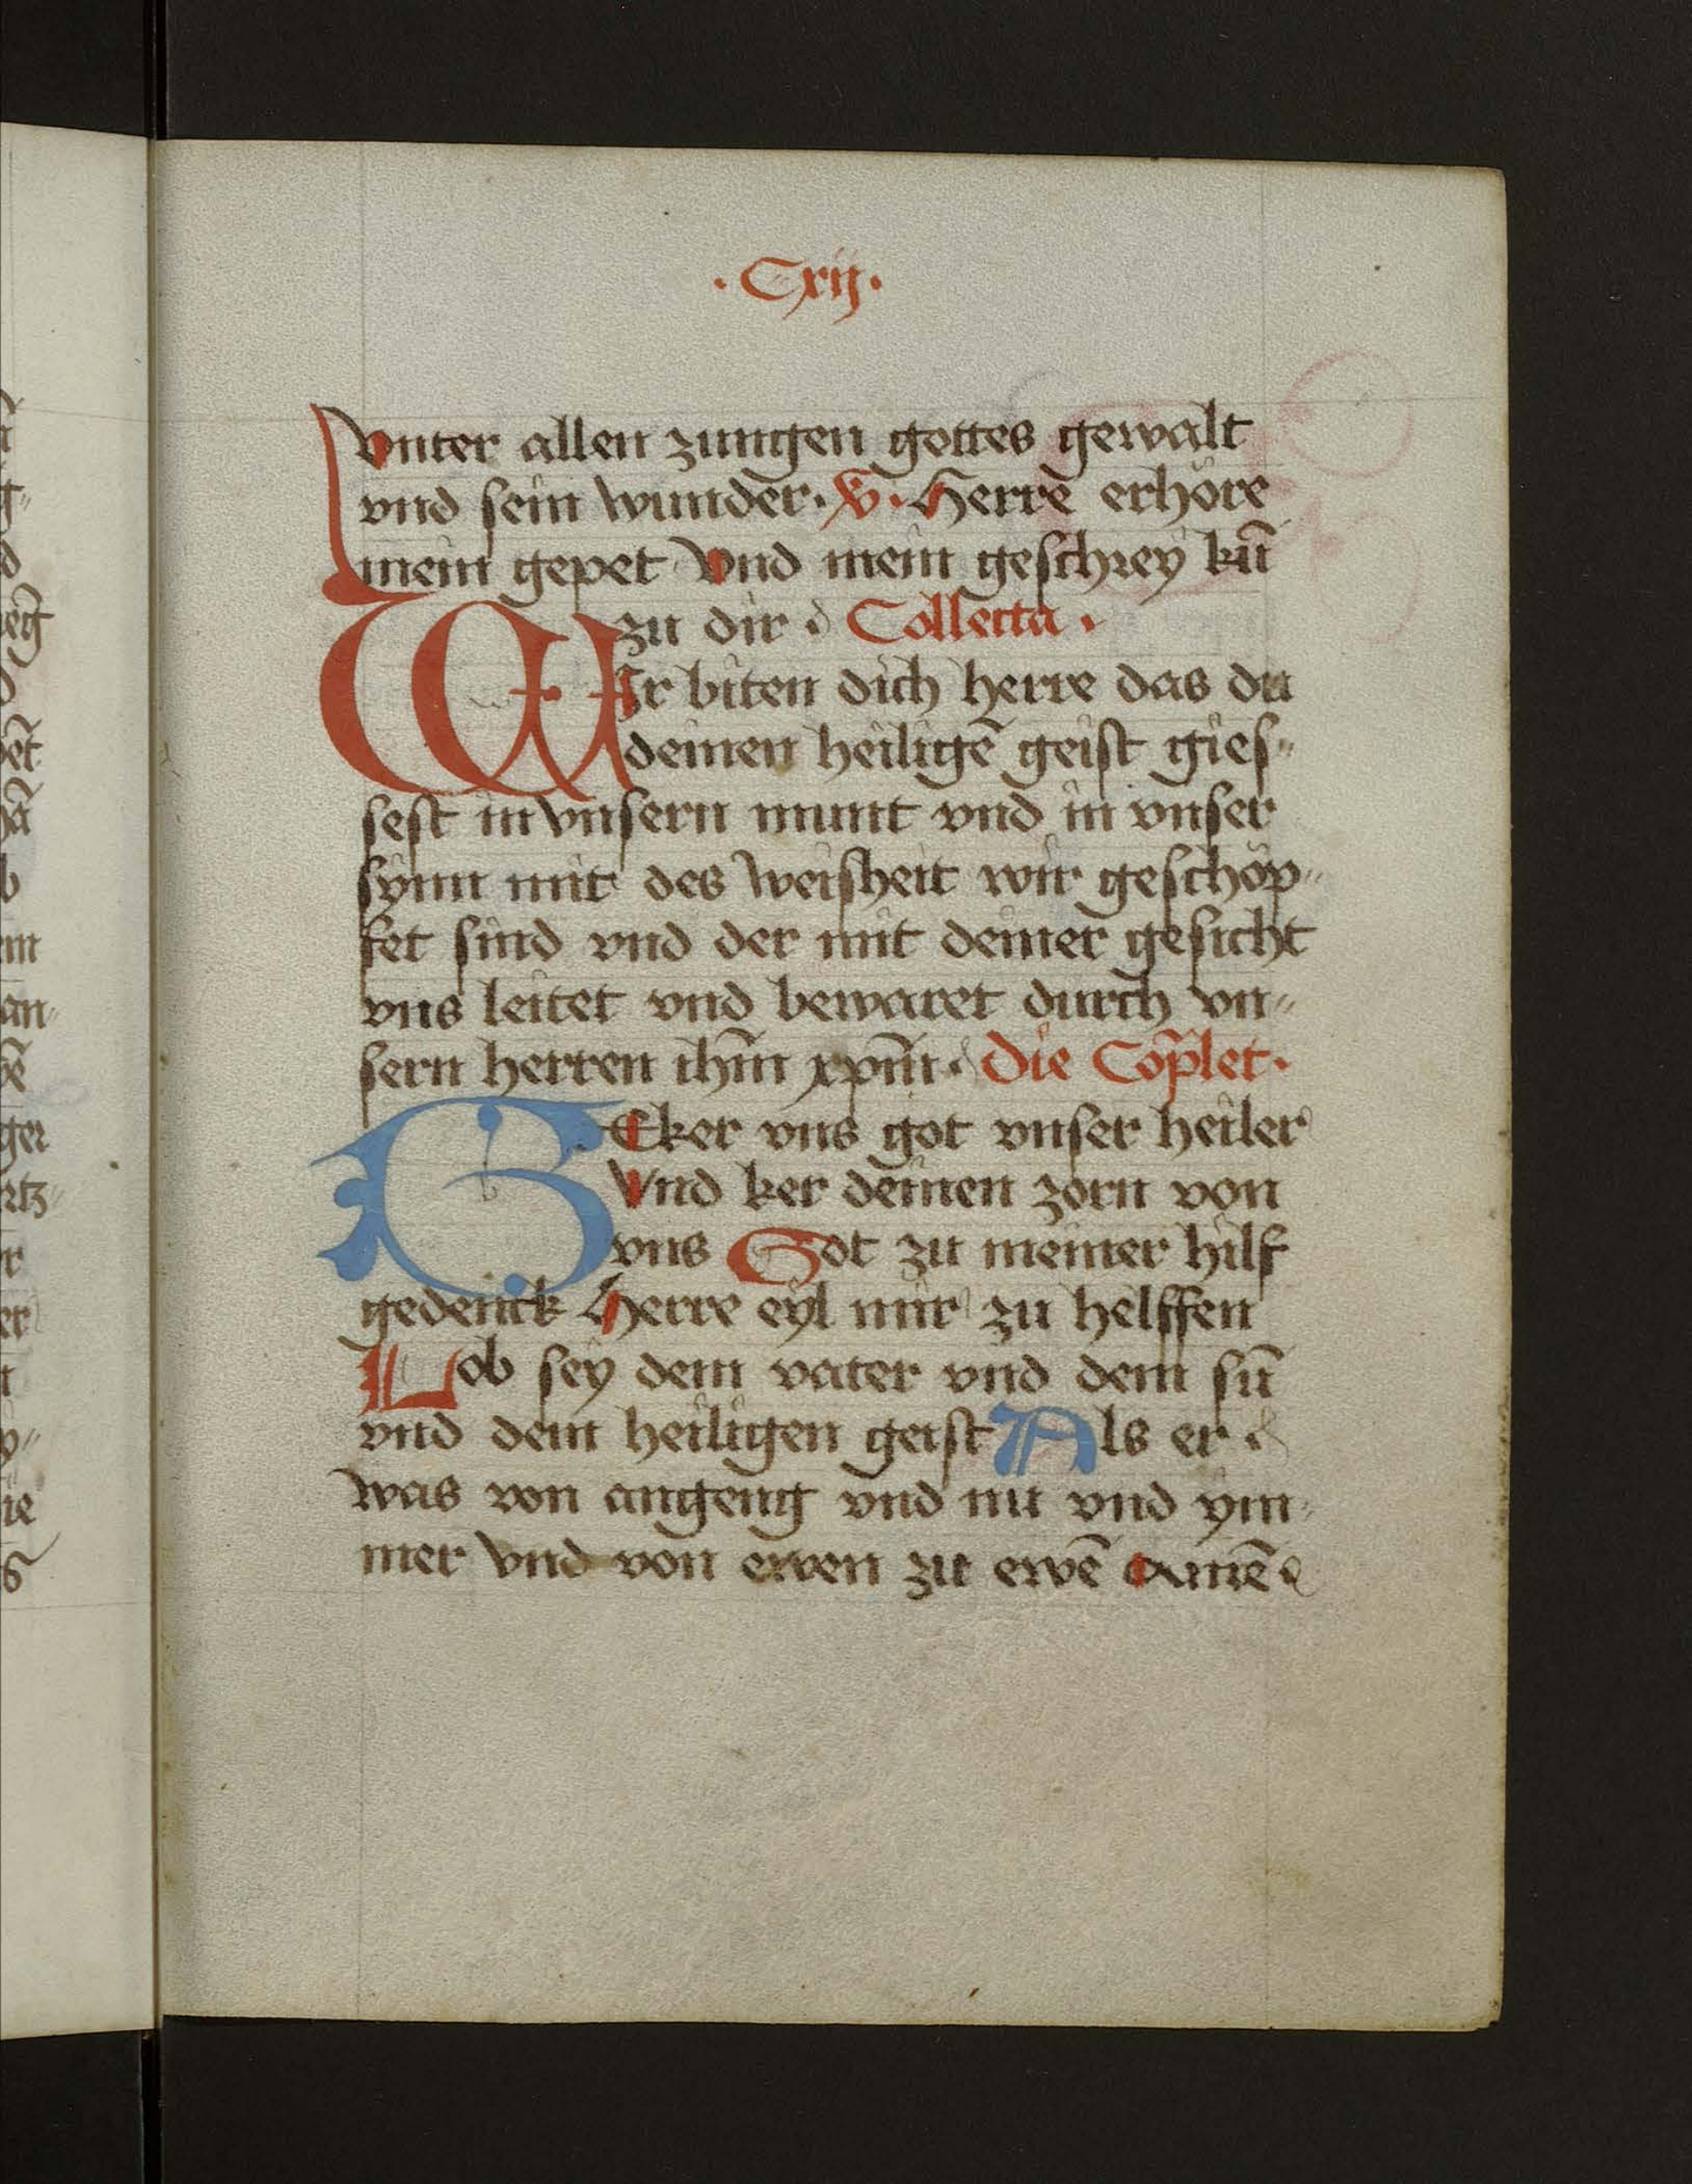 · Cxij ·
vnter allen zungen gottes gewalt
vnd sein wunder · V · Herre erhöre
mein gepet Vnd mein geschrey kū
zu dir · Collecta ·
WIr biten dich herre das du
deinen heiligē geist gies„
sest in vnsern munt vnd in vnser
synn mit des weisheit wir geschöp„
fet sind vnd der mit deiner gesicht
vns leitet vnd bewaret durch vn„
sern herren ihm̄ xpm̄ · Die Cop̄let ·
BEker vns got vnser heiler
Vnd ker deinen zorn von
vns Got zu meiner hilf
gedenck Herre eyl mir zu helffen
Lob sey dem vater vnd dem sū
vnd dem heiligen geist Als er ·
was von angeng vnd nu vnd ym„
mer vnd von ewen zu ewē Amē